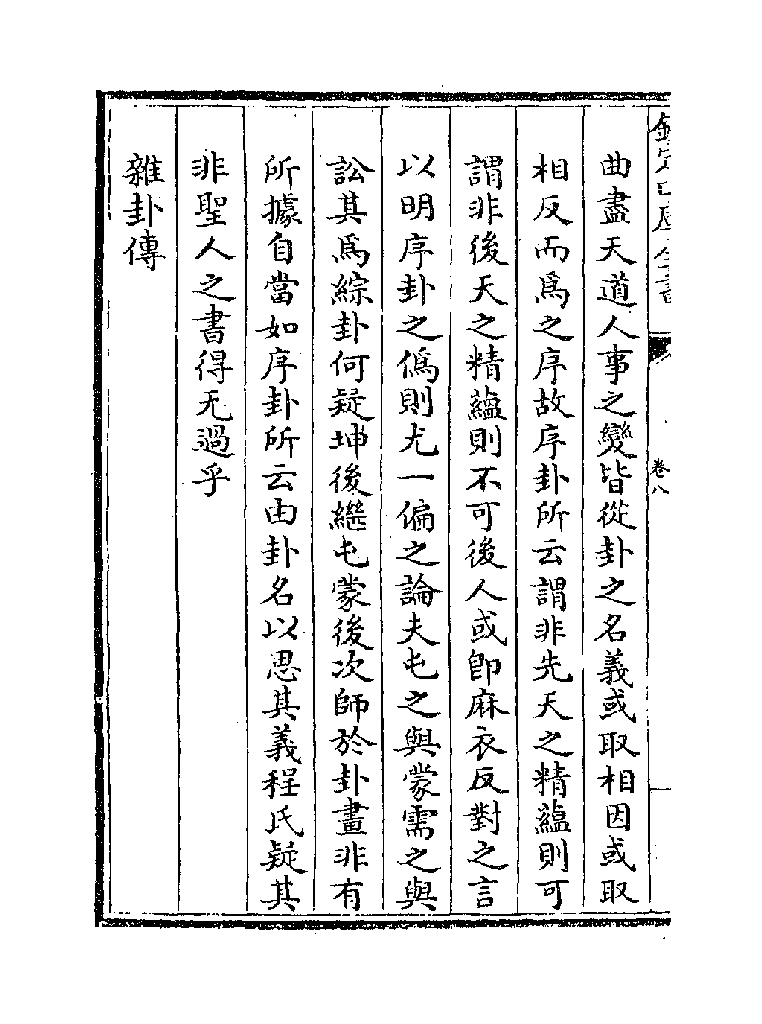 欽定四庫全書
卷八
曲盡天道人事之變皆從卦之名義或取相因或取
相反而為之序故序卦所云謂非先天之精蘊則可
謂非後天之精蘊則不可後人或卽麻衣反對之言
以明序卦之僞則尤一偏之論夫屯之與蒙需之與
訟其為綜卦何疑坤後繼屯蒙後次師於卦畫非有
所據自當如序卦所云由卦名以思其義程氏疑其
非聖人之書得无過乎
雜卦傳